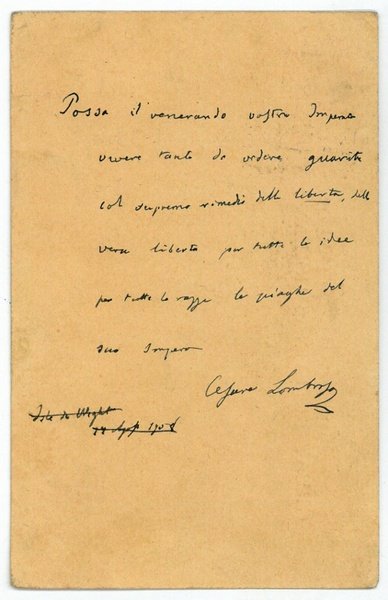 Possa il venerando vostro Impera
vivere tanto da vedere guarite
col supremo rimedio della libertà, della
vera libertà per tutte le idee
per tutte le razze le piaghe del
suo Impero
Cesare Lombroso
Isle do Wight
1908